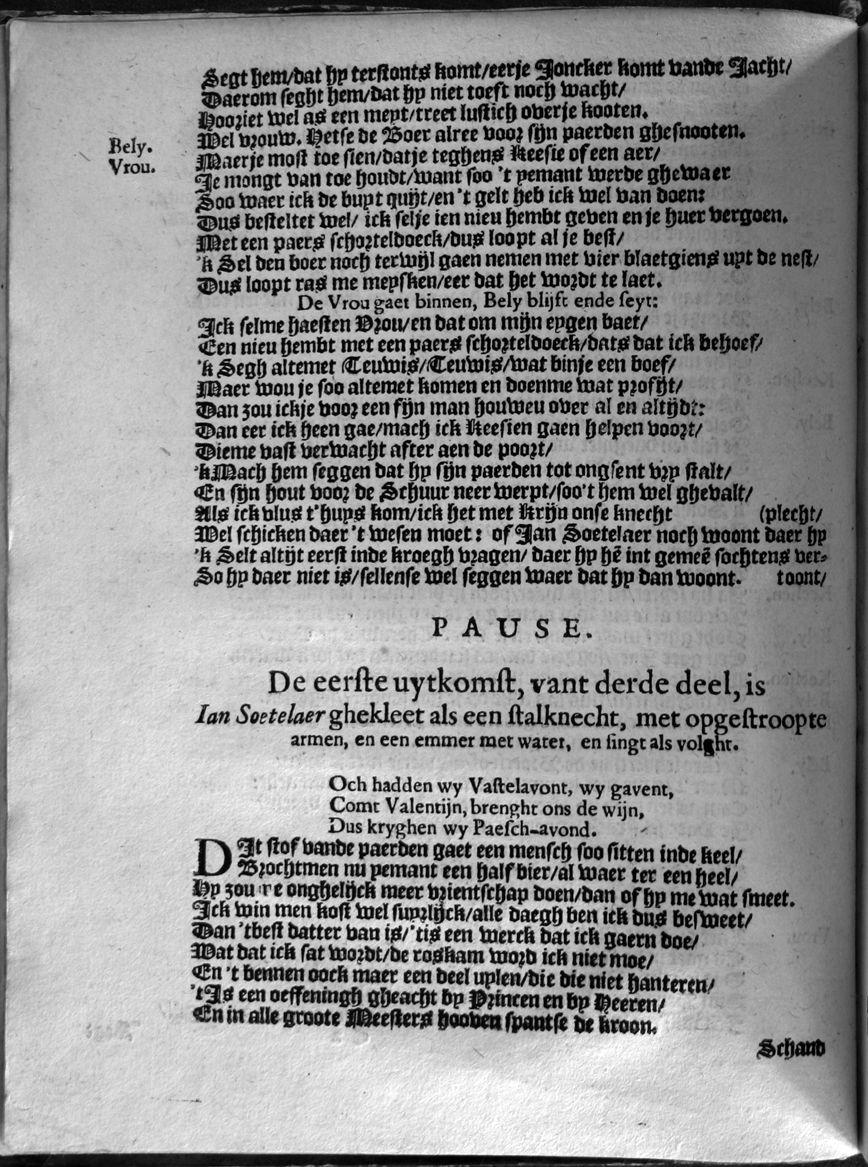 Segt hem/dat hy terstonts komt/eerje Joncker komt vande Jacht/
Daerom seght hem/dat hy niet toeft noch wacht/
Hooriet wel as een meyt/treet lustich over je kooten.
Bely. Wel vrouw. Hetse de Boer alree voor sijn paerden ghesnooten.
Vrou. Maerje most toe sien/datje teghens Keesie of een aer/
Je mongt van toe houdt/want soo 't yemant werde ghewaer
Soo waer ick de buyt quijt/en 't gelt heb ick wel van doen:
Dus besteltet wel/ ick selje ien nieu hembt geven en je huer vergoen.
Met een paers schorteldoeck/dus loopt al je best/
'k Sel den boer noch terwijl gaen nemen met vier blaetgiens uyt de nest/
Dus loopt ras me meysken/eer dat het wordt te laet.
De Vrou gaet binnen, Bely blijft ende seyt:
Ick selme haesten Vrou/en dat om mijn eygen baet/
Een nieu hembt met een paers schorteldoeck/dats dat ick behoef/
'k Segh altemet Teuwis/Teuwis/wat binje een boef/
Maer wou je soo altemet komen en doenme wat profijt/
Dan zou ickje voor een fijn man houweu over al en altijdt:
Dan eer ick heen gae/mach ick Keesien gaen helpen voort/
Dieme vast verwacht after aen de poort/
'kMach hem seggen dat hy sijn paerden tot ongsent vry stalt/
En sijn hout voor de Schuur neer werpt/soo't hem wel ghevalt/
Als ick vlus t'huys kom/ick het met Krijn onse knecht (plecht/
Wel schicken daer 't wesen moet: of Jan Soetelaer noch woont daer hy
'k Selt altijt eerst inde kroegh vragen/ daer hy hē int gemeē sochtens ver-
So hy daer niet is/sellense wel seggen waer dat hy dan woont. toont/
PAUSE.
De eerste uytkomst, vant derde deel, is
Ian Soetelaer ghekleet als een stalknecht, met opgestroopte
armen, en een emmer met water, en singt als volght.
Och hadden wy Vastelavont, wy gavent,
Comt Valentijn, brenght ons de wijn,
Dus kryghen wy Paesch-avond.
DIt stof vande paerden gaet een mensch soo sitten inde keel/
Brochtmen nu yemant een half bier/al waer ter een heel/
Hy zou onghelijck meer vrientschap doen/dan of hy me wat smeet.
Ick win men kost wel suyrlijck/alle daegh ben ick dus besweet/
Dan 'tbest datter van is/'tis een werck dat ick gaern doe/
Wat dat ick sat wordt/de roskam word ick niet moe/
En 't bennen oock maer een deel uylen/die die niet hanteren/
'tIs een oeffeningh gheacht by Princen en by Heeren/
En in alle groote Meesters hooven spantse de kroon.
Schand